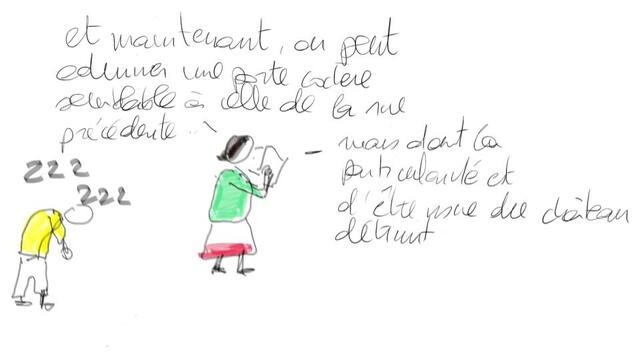 et maintenant, on peut
admirer une porte cochère
semblable à celle de la rue
précédente...
mais dont la
particularité est
d'être issue du château
détruit
ZZZ
ZZZ